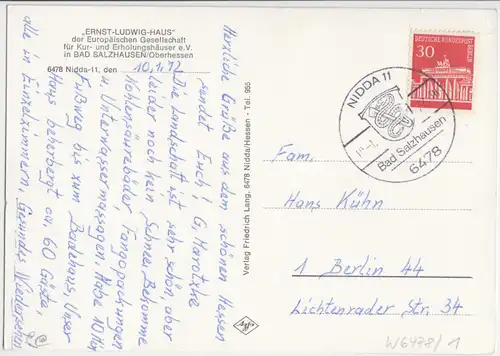 "ERNST-LUDWIG-HAUS"
der Europäischen Gesellschaft
für Kur- und Erholungshäuser e.V.
in BAD SALZHAUSEN/Oberhessen
6478 Nidda-11, den 10.1.72
Herzliche Grüße aus dem schönen Hessen
sendet Euch! G.
Die Landschaft ist sehr schön, aber
leider noch kein Schnee. Bekomme
Kohlensäurebäder, Fangopackungen
u. Unterwassermassagen. Habe 10 Min
Fußweg bis zum Badehaus. Unser
Haus beherbergt ca. 60 Gäste,
alle in Einzelzimmern. Gesundes Wiedersehen
Verlag Friedrich Lang, 6478 Nidda/Hessen - Tel. 955
DEUTSCHE BUNDESPOST
BERLIN
30
NIDDA 11
Bad Salzhausen
6478
Fam.
Hans Kühn
1 Berlin 44
Lichtenrader Str. 34
W6478/1